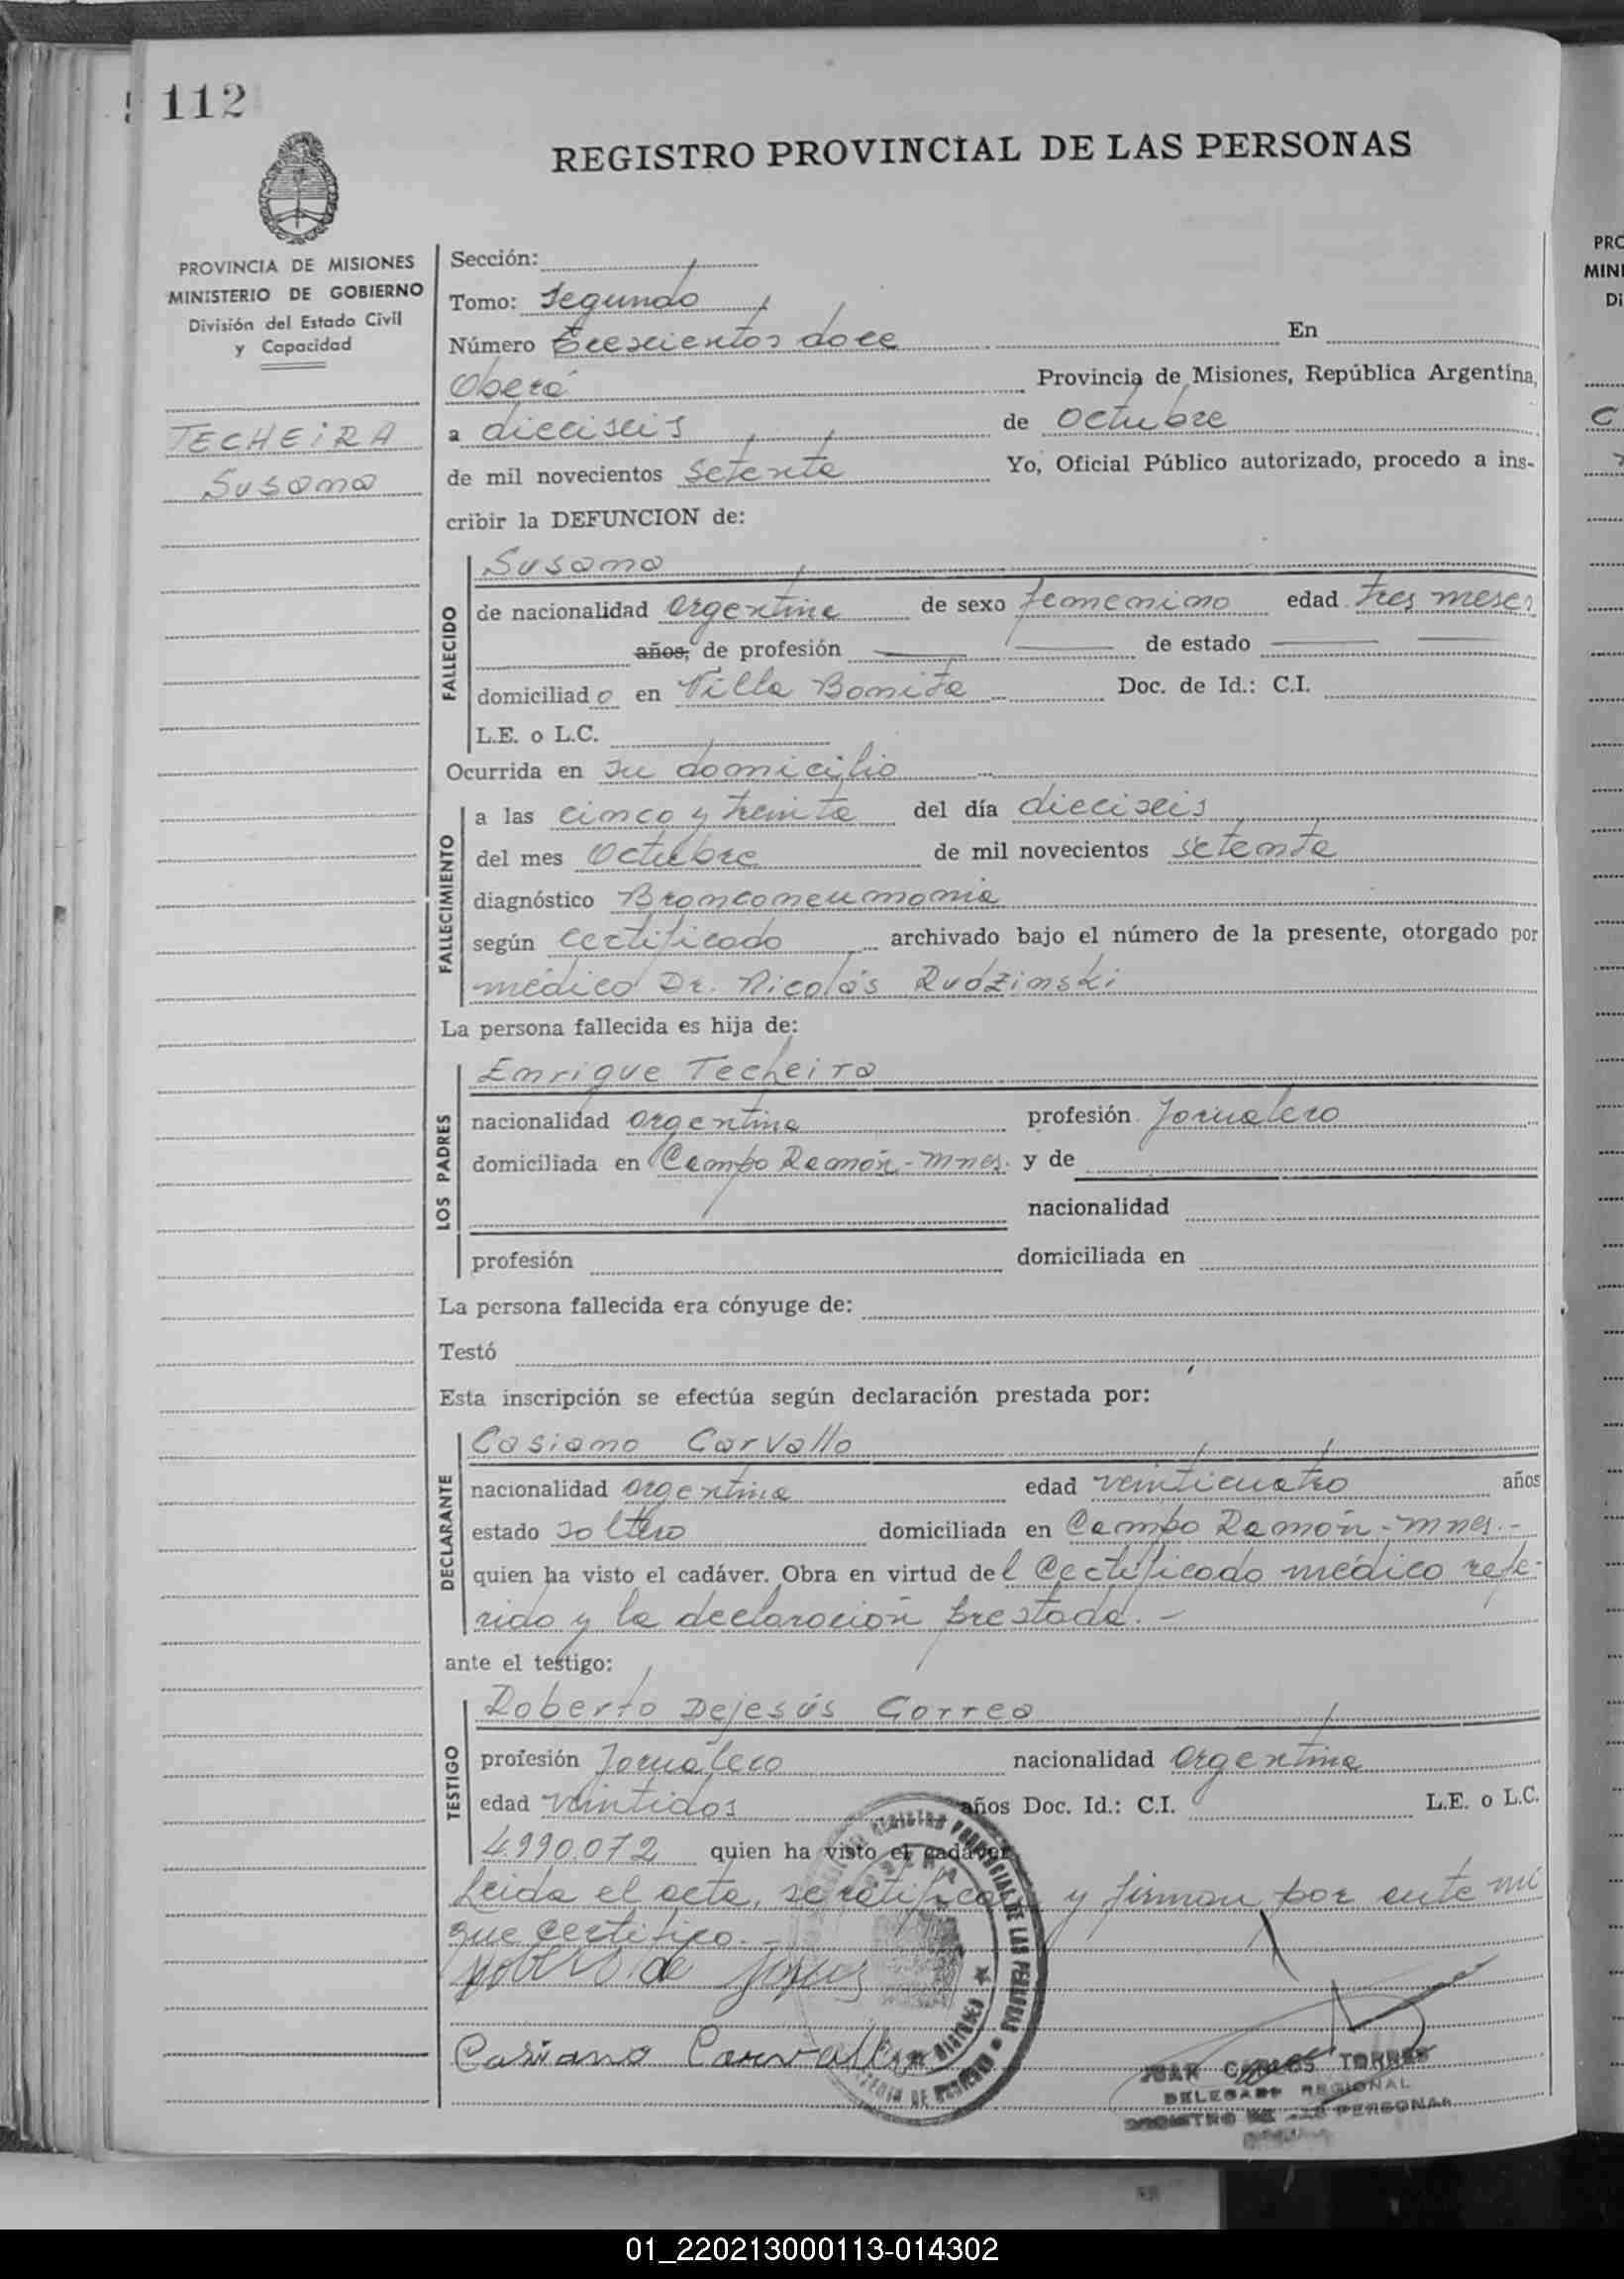 112
REGISTRO PROVINCIAL DE LAS PERSONAS
PROVINCIA DE MISIONES
MINISTERIO DE GOBIERNO
División del Estado Civil
y Capacidad
TECHEIRA
Susana
Sección:
Tomo: Segundo
Número Trescientos doce En
Oberá Provincia de Misiones, República Argentina,
a dieciseis de Octubre
de mil novecientos setenta Yo, Oficial Público autorizado, procedo a ins-
cribir la DEFUNCION de:
FALLECIDO
Susana
de nacionalidad argentina de sexo femenino edad tres meses
años, de profesión de estado
domiciliado en Villa Bonita Doc. de Id.: C.I.
L.E. o L.C.
Ocurrida en su domicilio
FALLECIMIENTO
a las cinco y treinta del día dieciseis
del mes Octubre de mil novecientos setenta
diagnóstico Bronconeumonia
según certificado archivado bajo el número de la presente, otorgado por
médico Dr. Nicolás Rudzinski
La persona fallecida es hija de:
LOS PADRES
Enrique Techeira
nacionalidad argentina profesión Jornalero
domiciliada en Campo Ramón - Mnes. y de
nacionalidad
profesión domiciliada en
La persona fallecida era cónyuge de:
Testó
Esta inscripción se efectúa según declaración prestada por:
DECLARANTE
Casiano Carvallo
nacionalidad argentina edad veinticuatro años
estado soltero domiciliada en Campo Ramón - Mnes. -
quien ha visto el cadáver. Obra en virtud del Certificado médico refe-
rido y la declaración prestada. -
ante el testigo:
TESTIGO
Roberto Dejesús Correa
profesión Jornalero nacionalidad argentina
edad veintidos años Doc. Id.: C.I. L.E. o L.C.
4.990.072 quien ha visto el cadáver
Leida el acta, se ratifican y firman por ante mi
que certifico. -
de
Casiano Carvallo
JUAN CARLOS TORRES
DELEGADO REGIONAL
REGISTRO DE LAS PERSONAS
01_220213000113-014302